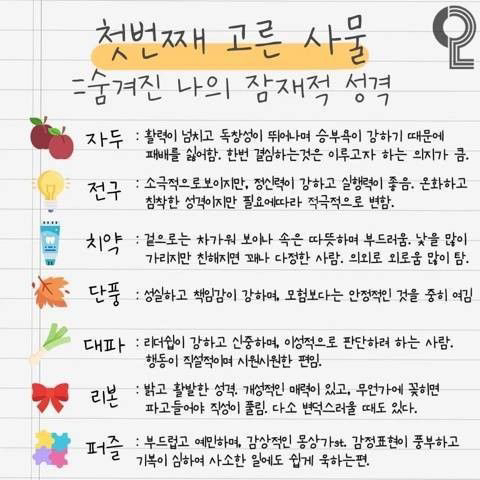 첫번째 고른 사물
=숨겨진 나의 잠재적 성격
자두 : 활력이 넘치고 독창성이 뛰어나며 승부욕이 강하기 때문에
패배를 싫어함. 한번 결심하는것은 이루고자 하는 의지가 큼.
전구 : 소극적으로보이지만, 정신력이 강하고 실행력이 좋음. 온화하고
침착한 성격이지만 필요에따라 적극적으로 변함.
치약 : 겉으로는 차가워 보이나 속은 따뜻하며 부드러움. 낯을 많이
가리지만 친해지면 꽤나 다정한 사람. 의외로 외로움 많이 탐.
단풍 : 성실하고 책임감이 강하며, 모험보다는 안정적인 것을 중히 여김
대파 : 리더쉽이 강하고 신중하며, 이성적으로 판단하려 하는 사람.
행동이 직설적이며 시원시원한 편임.
리본 : 밝고 활발한 성격. 개성적인 매력이 있고, 무언가에 꽂히면
파고들어야 직성이 풀림. 다소 변덕스러울 때도 있다.
퍼즐 : 부드럽고 예민하며, 감상적인 몽상가st. 감정표현이 풍부하고
기복이 심하여 사소한 일에도 쉽게 욱하는편.